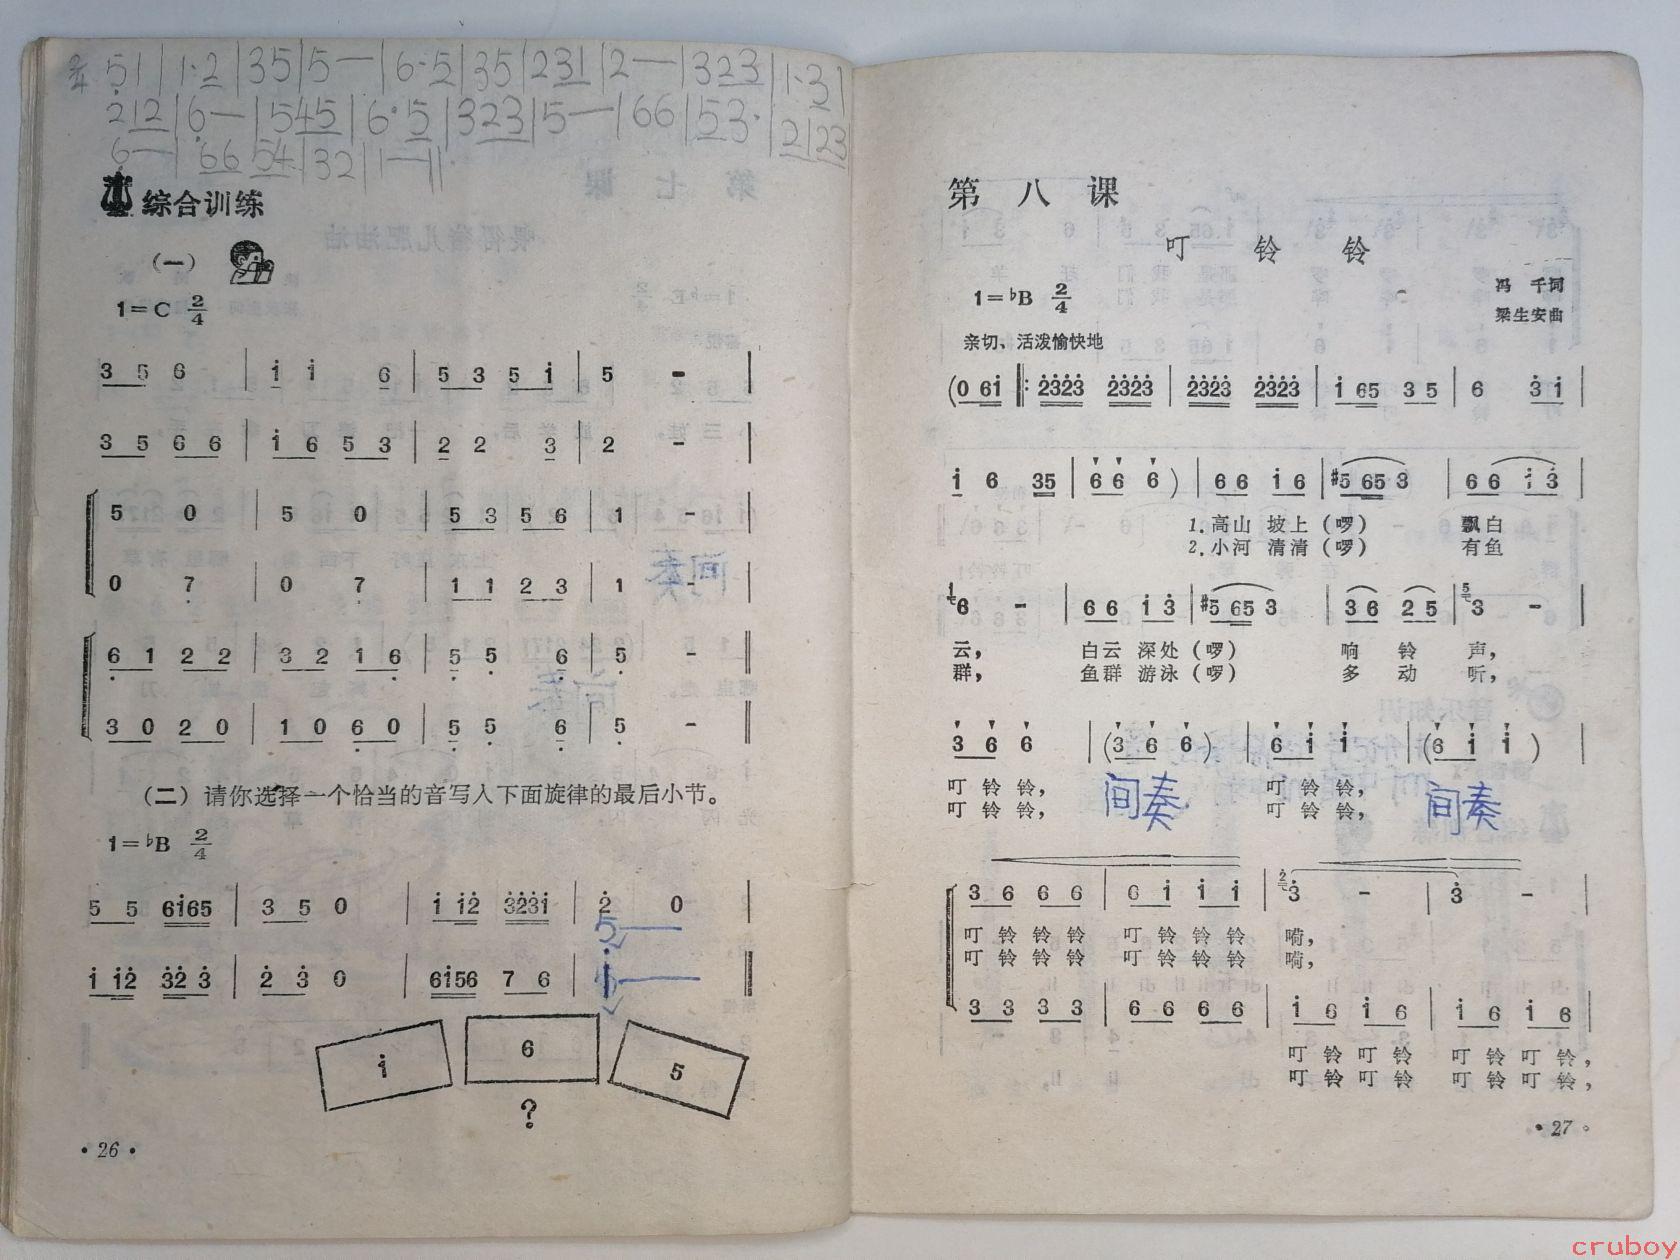 2/4 5̣ 1 | 1· 2 | 3 5 | 5 — | 6· 5 | 3 5 | 2 3 1 | 2 — | 3 2 3 | 1· 3 |
2 1 2 | 6̣ — | 5 4 5 | 6· 5 | 3 2 3 | 5 — | 6 6 | 5 3· | 2 1 2 3
6̣ — | 6 6 5 4 | 3 2 | 1 — ||
综合训练
(一)
1=C 2/4
3 5 6 | i i 6 | 5 3 5 i | 5 - |
3 5 6 6 | i 6 5 3 | 2 2 3 | 2 - |
5 0 | 5 0 | 5 3 5 6 | 1 - |
0 7̣ | 0 7̣ | 1 1 2 3 | 1 - |
6̣ 1 2 2 | 3 2 1 6̣ | 5̣ 5̣ 6̣ | 5̣ - ||
3 0 2 0 | 1 0 6̣ 0 | 5̣ 5̣ 6̣ | 5̣ - ||
(二) 请你选择一个恰当的音写入下面旋律的最后小节。
1=♭B 2/4
5 5 6i65 | 3 5 0 | i i2̇ 3̇2̇3̇i | 2̇ 0 |
5 —
i i2̇ 3̇2̇ 3̇ | 2̇ 3̇ 0 | 6i56 7 6 | i — ||
i 6 5
?
· 26 ·
第 八 课
叮 铃 铃
1=♭B 2/4
冯 千词
梁生安曲
亲切、活泼愉快地
(0 6i ‖: 2̇3̇2̇3̇ 2̇3̇2̇3̇ | 2̇3̇2̇3̇ 2̇3̇2̇3̇ | i 65 3 5 | 6 3̇ i |
i 6 35 | 6 6 6 ) | 6 6 i 6 | #5 65 3 | 6 6 i 3̇ |
1.高山 坡上 (啰) 飘白
2.小河 清清 (啰) 有鱼
i6 - | 6 6 i 3̇ | #5 65 3 | 3 6 2 5 | 5 3 - |
云， 白云 深处 (啰) 响 铃 声，
群， 鱼群 游泳 (啰) 多 动 听，
3 6 6 | (3 6 6) | 6 i i | (6 i i) |
叮 铃 铃， 间奏 叮 铃 铃， 间奏
叮 铃 铃， 叮 铃 铃，
3 6 6 6 | 6 i i i | 2̇ 3̇ - | 3̇ - |
叮 铃 铃 铃 叮 铃 铃 铃 嗬，
叮 铃 铃 铃 叮 铃 铃 铃 嗬，
3 3 3 3 | 6 6 6 6 | i 6 i 6 | i 6 i 6 |
叮 铃 叮 铃 叮 铃 叮 铃，
叮 铃 叮 铃 叮 铃 叮 铃，
· 27 ·
cruboy